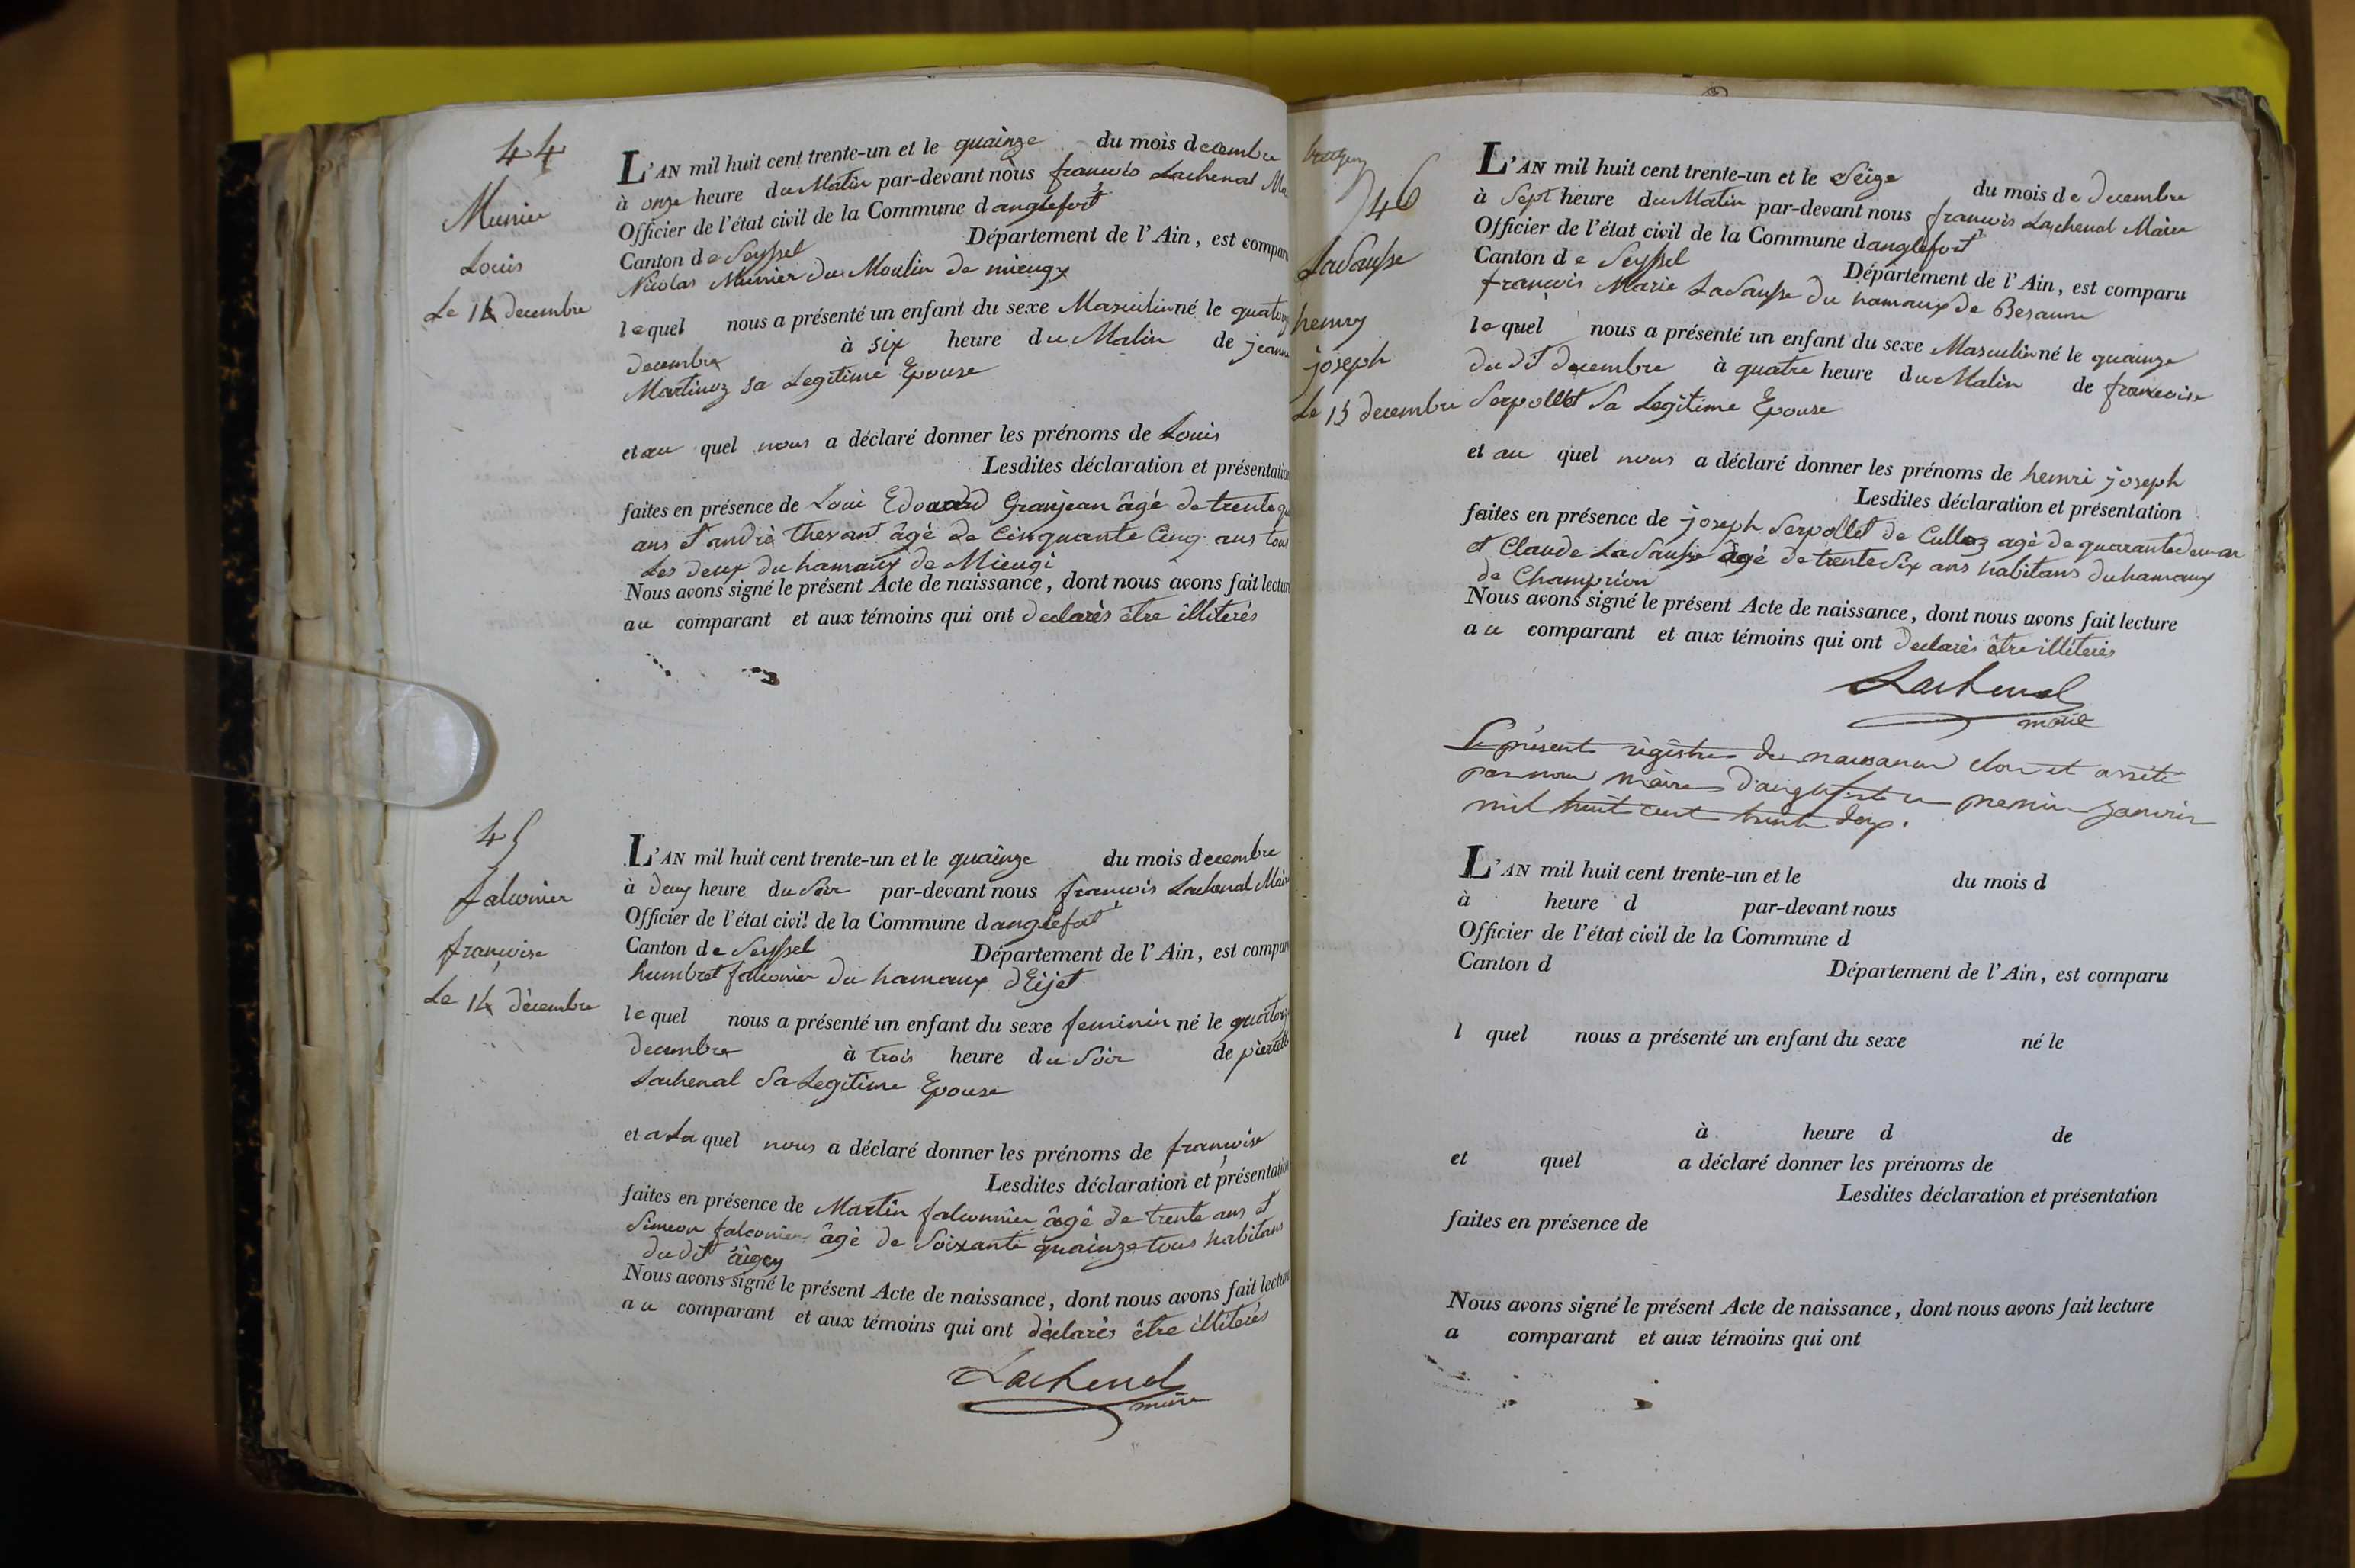 44
Munier
Louis
Le 14 decembre
L'AN mil huit cent trente-un et le quainze du mois decembre
à onze heure du Matin par-devant nous francois Lachenal
Officier de l'état civil de la Commune danglefort
Canton de Seyssel Département de l'Ain, est compar
Nicolas Munier du Moulin de mieugy
lequel nous a présenté un enfant du sexe Masculin né le quatorz
decembre à six heure du Matin de jeanne
Martinoz sa Legitime Epouse
et au quel nous a déclaré donner les prénoms de Louis
Lesdites déclaration et présentation
faites en présence de Loui Edouard Granjean âgé de trente
ans et andré thevant âgé de Cinquante Cinq ans tous
Les deux du hamaux de Mieugi
Nous avons signé le présent Acte de naissance, dont nous avons fait lecture
au comparant et aux témoins qui ont declarés être illiterés
45
falconier
francoise
Le 14 décembre
L'AN mil huit cent trente-un et le quainze du mois decembre
à deux heure du Soir par-devant nous francois Lachenal Maire
Officier de l'état civil de la Commune danglefort
Canton de Seyssel Département de l'Ain, est compar
humbret falconier du hamaux dEijet
lequel nous a présenté un enfant du sexe feminin né le quatorz
decembre à trois heure du Soir de pierrette
Lachenal Sa Legitime Epouse
et a La quel nous a déclaré donner les prénoms de francoise
Lesdites déclaration et présentation
faites en présence de Martin falconnier âgé de trente ans et
Simeon falconier âgé de Soixante quainze tous habitans
du dit
Nous avons signé le présent Acte de naissance, dont nous avons fait lecture
au comparant et aux témoins qui ont déclarés être illiterés
Lachenal
maire
46
Ladausse
henry
joseph
Le 15 decembre
L'AN mil huit cent trente-un et le Seize du mois de decembre
à Sept heure du Matin par-devant nous francois Lachenal Maire
Officier de l'état civil de la Commune danglefort
Canton de Seyssel Département de l'Ain, est comparu
francois Marie Ladausse du hamaux de Besanne
lequel nous a présenté un enfant du sexe Masculin né le quainze
du dit decembre à quatre heure du Matin de francoise
Serpollet Sa Legitime Epouse
et au quel nous a déclaré donner les prénoms de henri joseph
Lesdites déclaration et présentation
faites en présence de joseph Serpollet de Culloz agé de quarante deux an
et Claude Ladausse âgé de trente Six ans habitans du hamaux
de Champrion
Nous avons signé le présent Acte de naissance, dont nous avons fait lecture
au comparant et aux témoins qui ont declarés être illiterés
Lachenal
maire
Le présent régistre de naissance clos et arrêté
par nous maire d'anglefort le premier janvier
mil huit cent trente deux.
L'AN mil huit cent trente-un et le du mois d
à heure d par-devant nous
Officier de l'état civil de la Commune d
Canton d Département de l'Ain, est comparu
l quel nous a présenté un enfant du sexe né le
à heure d de
et quel a déclaré donner les prénoms de
Lesdites déclaration et présentation
faites en présence de
Nous avons signé le présent Acte de naissance, dont nous avons fait lecture
a comparant et aux témoins qui ont